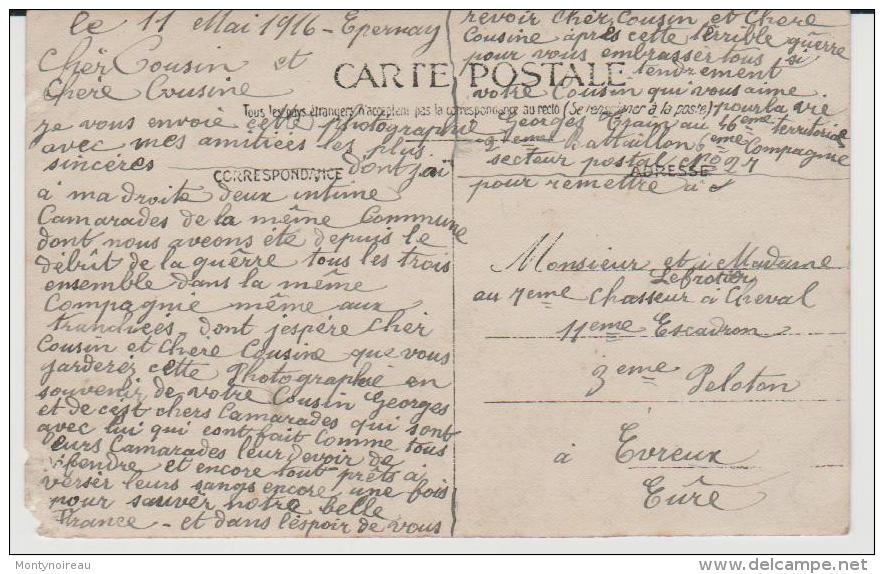 le 11 Mai 1916 - Epernay
Chèr Cousin et
Chère Cousine
CARTE POSTALE
Tous les pays étrangers n'acceptent pas la correspondance au recto (Se renseigner à la poste)
je vous envoie cette photographie
avec mes amitiées les plus
sincères dont jai
CORRESPONDANCE
à ma droite deux intime
Camarades de la même Commune
dont nous aveons été depuis le
débût de la guèrre tous les trois
ensemble dans la même
Compagnie même aux
tranchées, dont jespére Chèr
Cousin et Chère Cousine que vous
garderéz cette Photographie en
souvenir de votre Cousin Georges
et de cest chers Camarades qui sont
avec lui qui eont fait Comme tous
leurs Camarades leur devoir de
défendre et encore tout prêts à
versér leurs sangs encore une fois
pour sauvér notre belle
France - et dans lespoir de vous
revoir Chèr Cousin et Chere
Cousine aprés cette térrible guèrre
pour vous embrassér tous si
tendrement
votre Cousin qui vous aime
pour la vie
Georges Train au 46eme territorial
2eme Bataillon 6eme Compagnie
secteur postal No 27
ADRESSE
pour remettre à
Monsieur et à Madame
au 7eme Chasseur à Cheval
11eme Escadron
3eme Peloton
à Évreux
Eûre
Montynoireau
delcampe.net